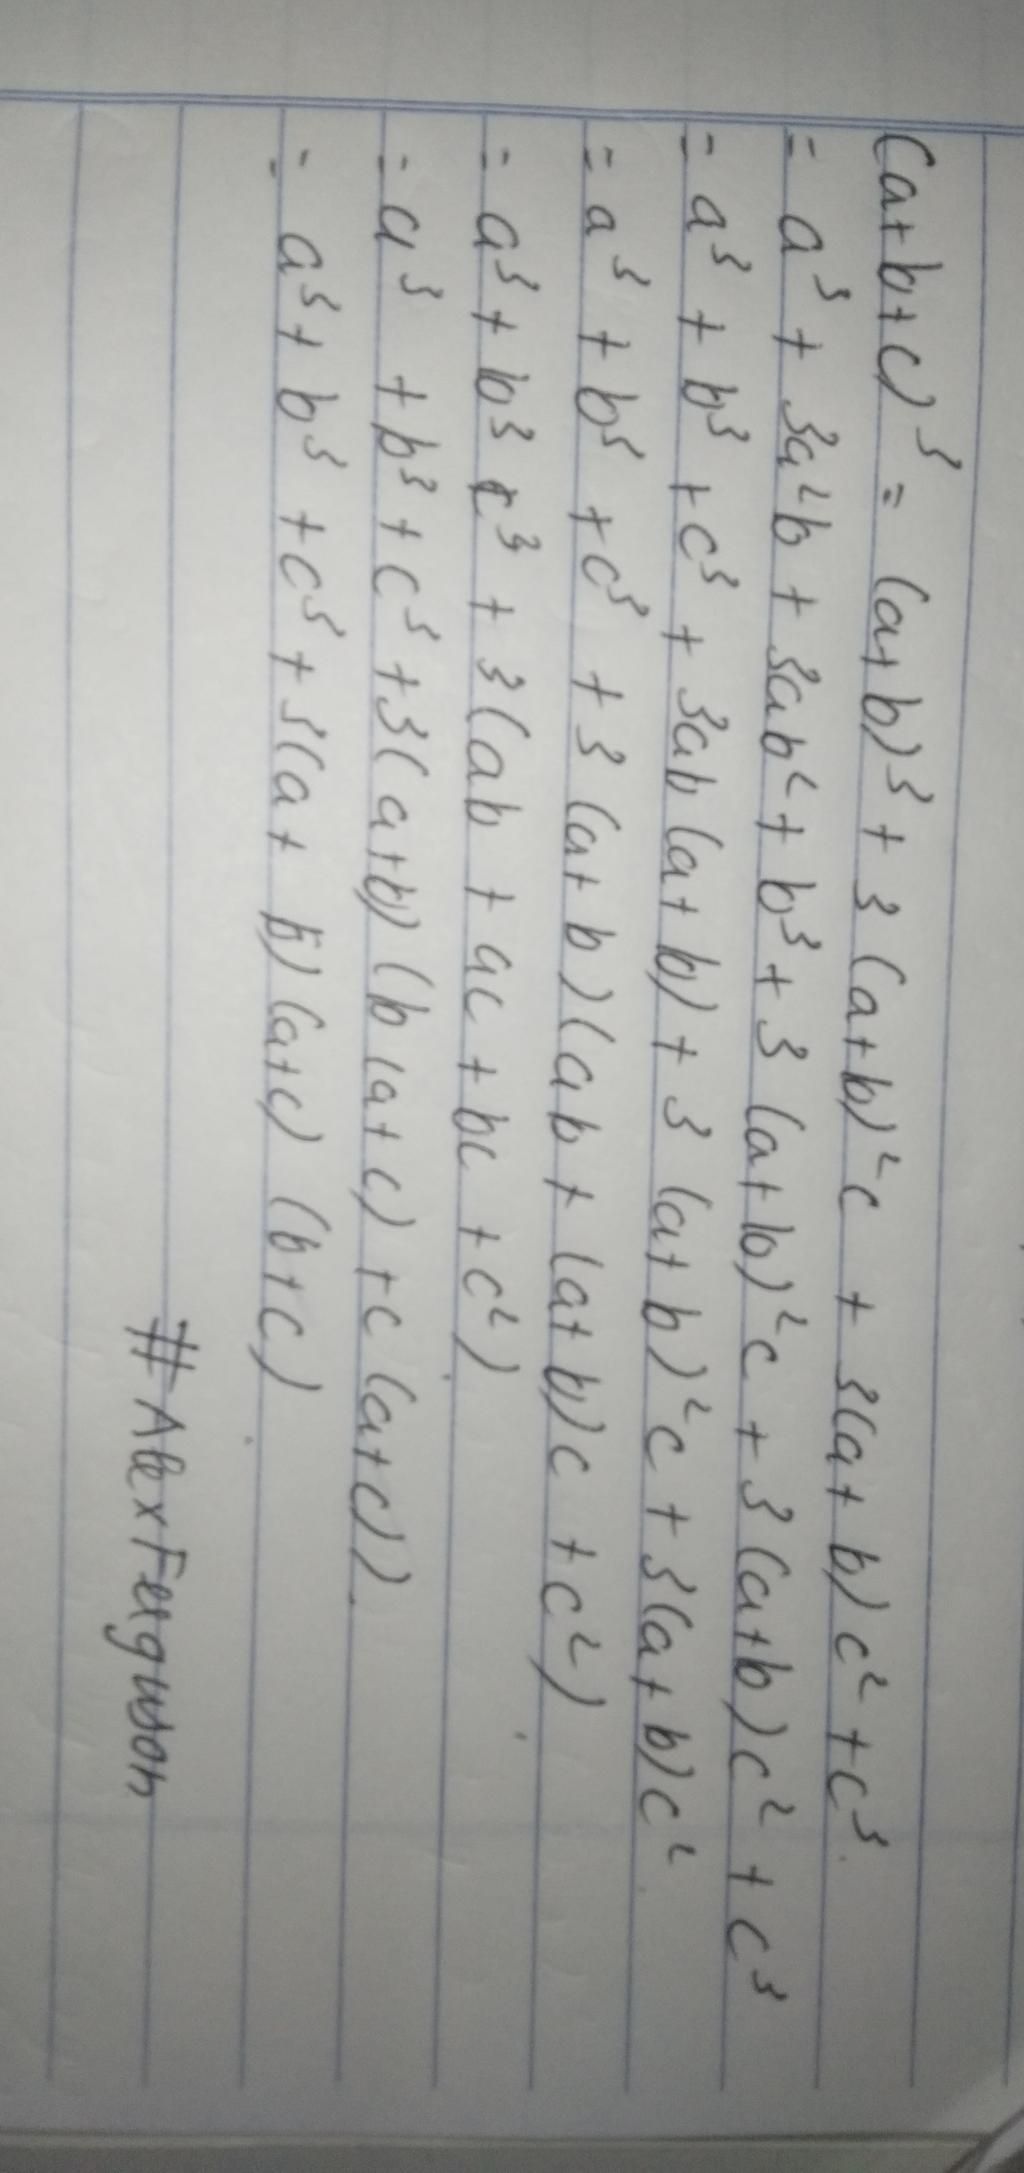 (a+b+c)³ = (a+b)³ + 3(a+b)²c + 3(a+b)c² + c³.
= a³ + 3a²b + 3ab² + b³ + 3(a+b)²c + 3(a+b)c² + c³
= a³ + b³ + c³ + 3ab(a+b) + 3(a+b)²c + 3(a+b)c².
= a³ + b³ + c³ + 3(a+b)(ab + (a+b)c + c²).
= a³ + b³ c³ + 3(ab + ac + bc + c²).
= a³ + b³ + c³ + 3(a+b)(b(a+c) + c(a+c)).
= a³ + b³ + c³ + 3(a+b)(a+c)(b+c).
#AlexFerguson